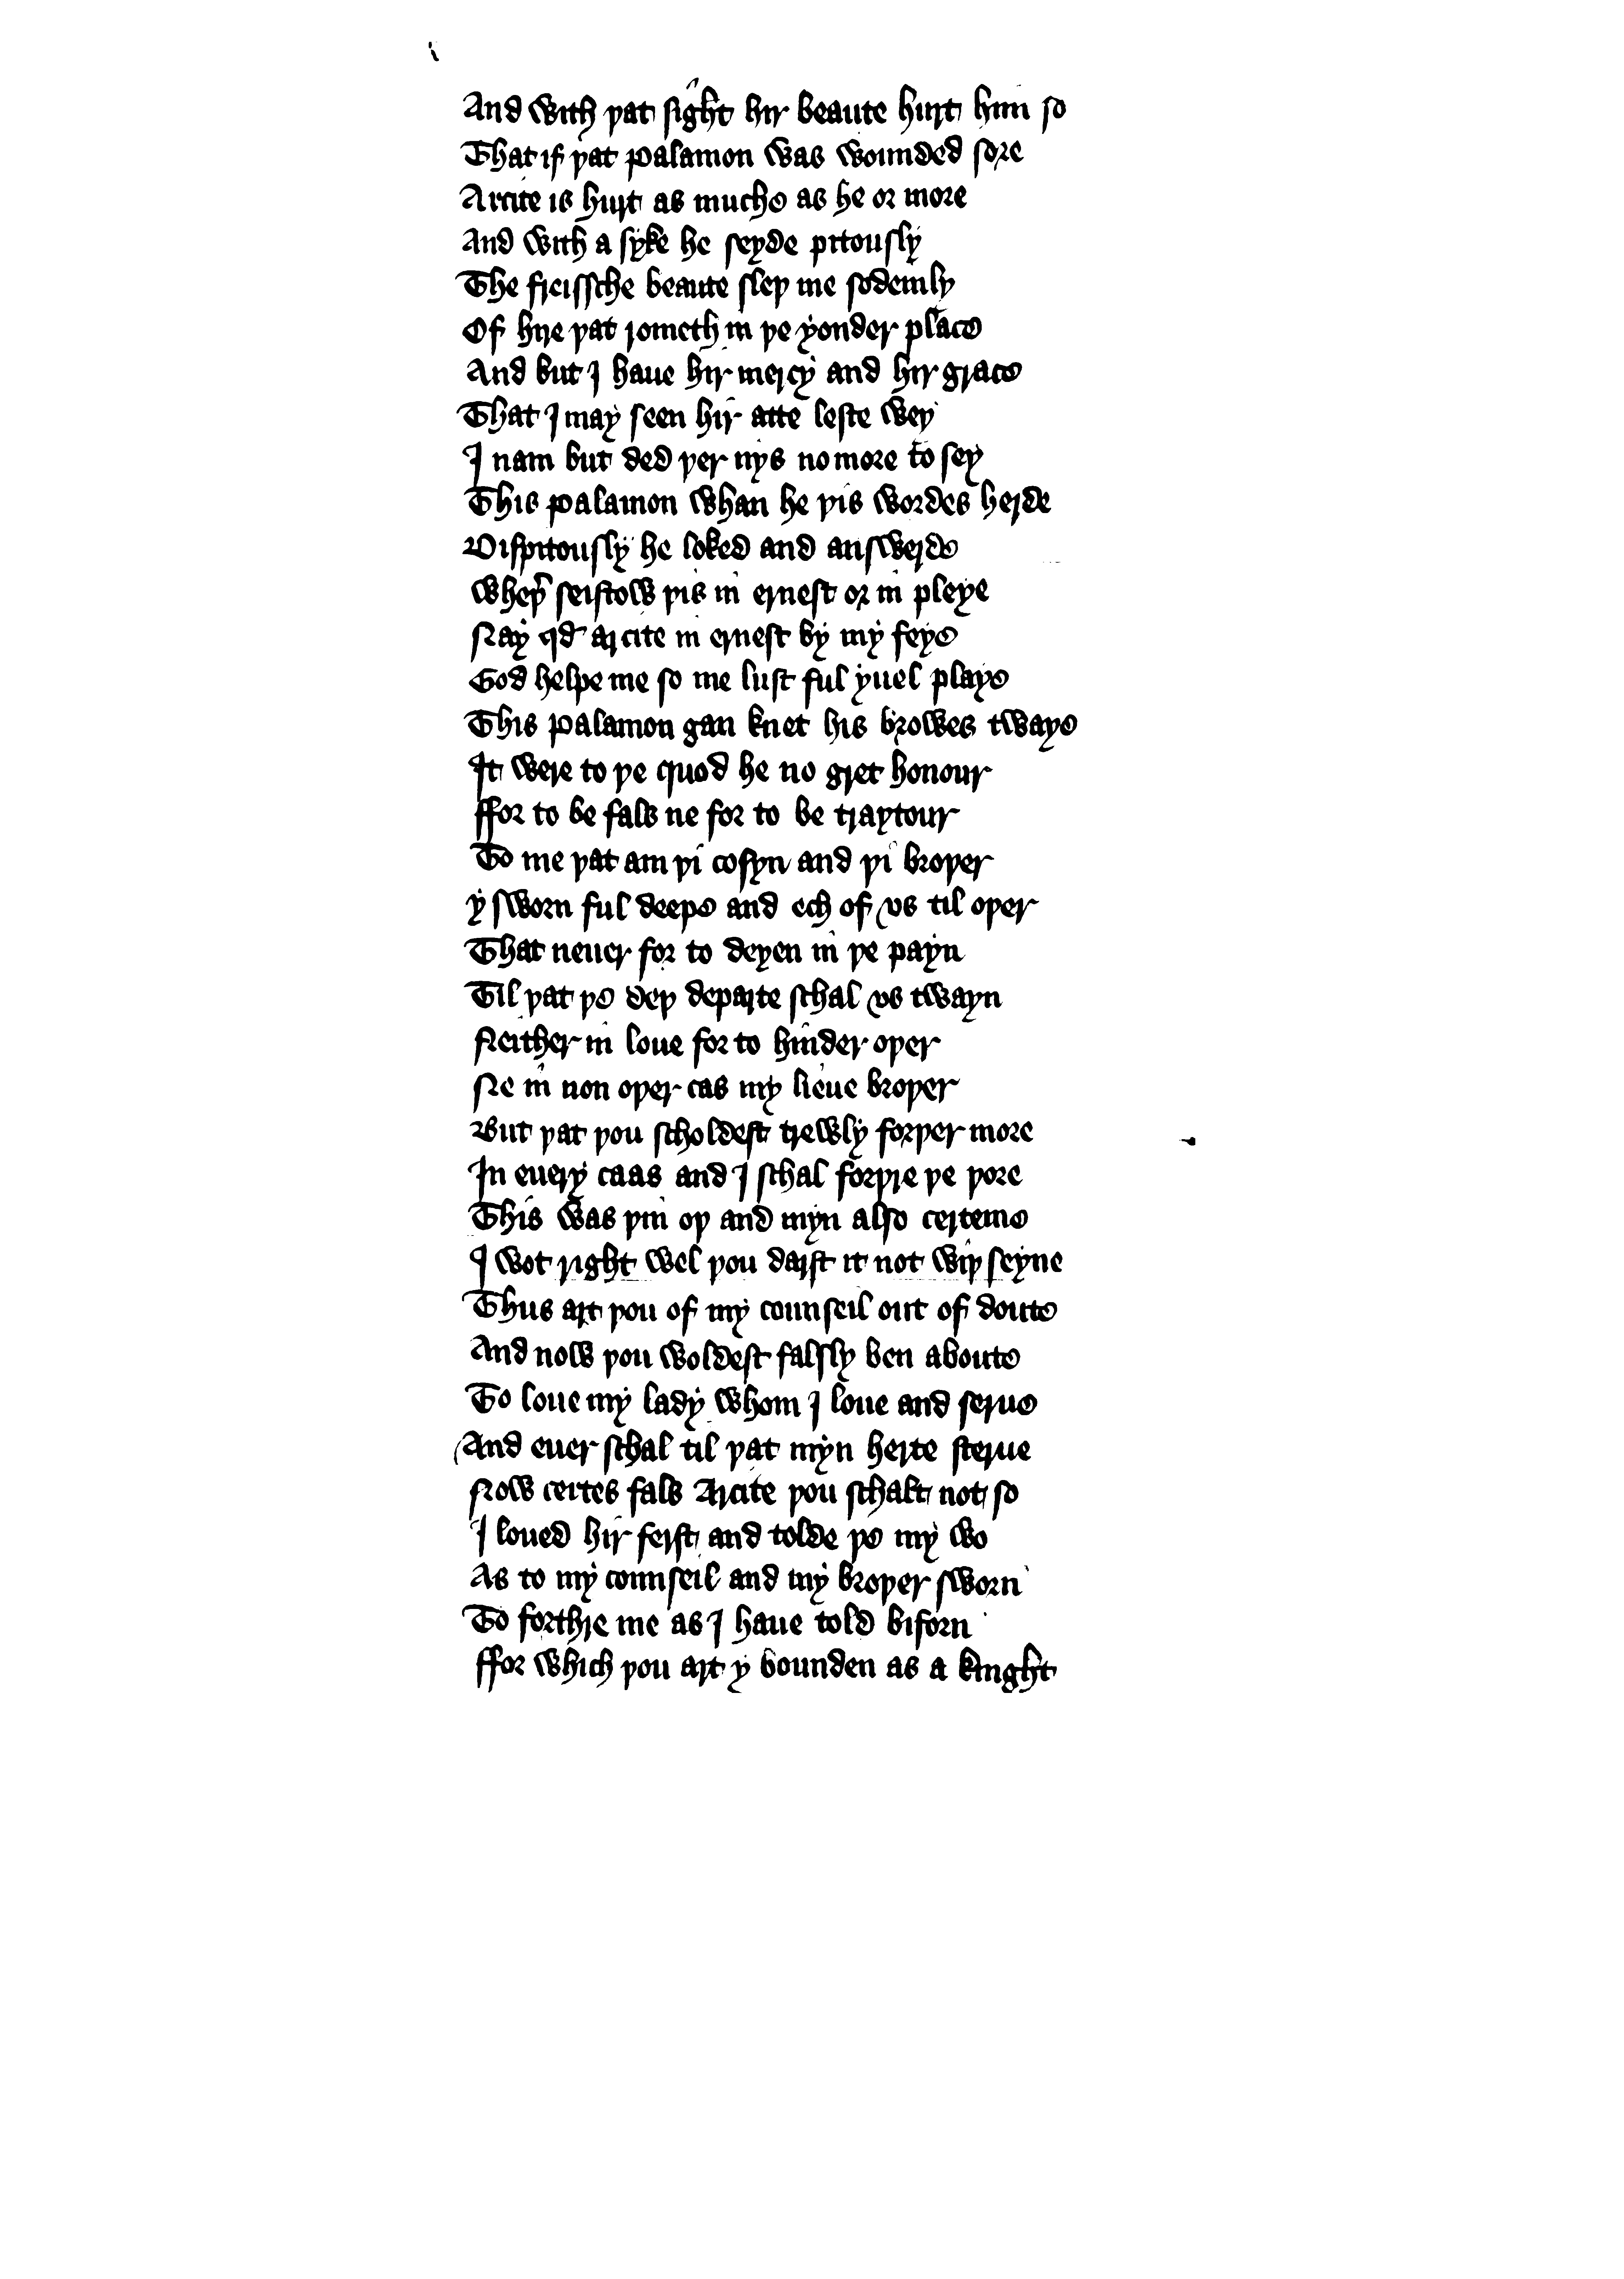 And with þat sight hir beaute hurt him so
That if þat Palamon was wounded sore
Arcite is hurt as muche as he or more
And with a syke he seyde pitously
The freissche beaute sleþ me sodeinly
Of hire þat rometh in þe yonder place
And but I haue hir mercy and hir grace
That I may seen hir atte leste wey
I nam but ded þer nys no more to sey
This Palamon whan he þis wordes herde
Dispitously he loked and answerde
Wheþer seistow þis in ernest or in pleye
Nay qd Arcite in ernest by my feye
God helpe me so me lust ful yuel playe
This Palamon gan knet his browes twaye
It were to þe quod he no gret honour
ffor to be fals ne for to be traytour
To me þat am þi cosyn and þi broþer
y sworn ful deepe and ech of vs til oþer
That neuer for to deyen in þe payn
Til þat þe deþ departe schal vs twayn
Neither in loue for to hinder oþer
Ne in non oþer cas my lieue broþer
But þat þou scholdest trewly forþer more
In euery caas and I schal forþre þe þore
This was þin oþ and myn also certeine
I wot right wel þou darst it not wiþ seyne
Thus art þou of my counseil out of doute
And now þou woldest falsly ben aboute
To loue my lady whom I loue and serue
And euer schal til þat myn herte sterue
Now certes fals Arcite þou schalt not so
I loued hir ferst and tolde þe my wo
As to my counseil and my broþer sworn
To forthre me as I haue told biforn
ffor which þou art y bounden as a knight